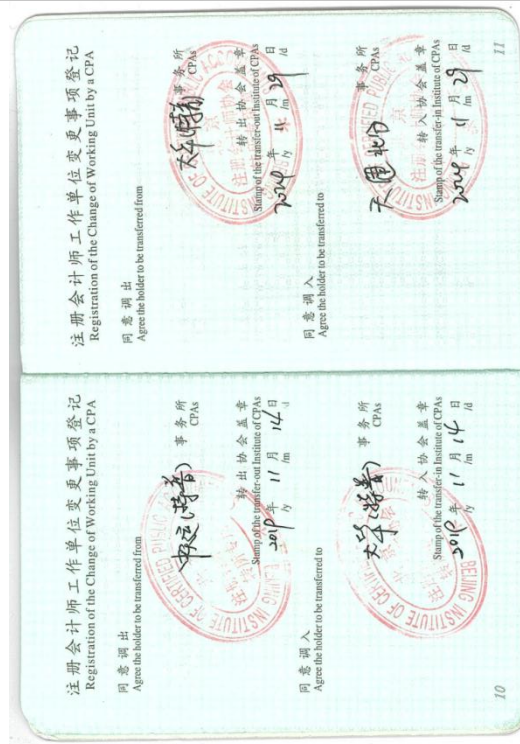 注册会计师工作单位变更事项登记
Registration of the Change of Working Unit by a CPA
同意调出
Agree the holder to be transferred from
事务所
CPAs
转出协会盖章
Stamp of the transfer-out Institute of CPAs
11月14日
/y /m /d
同意调入
Agree the holder to be transferred to
事务所
CPAs
转入协会盖章
Stamp of the transfer-in Institute of CPAs
11月14日
/y /m /d
BEIJING INSTITUTE OF CERTIFIED PUBLIC
10
注册会计师工作单位变更事项登记
Registration of the Change of Working Unit by a CPA
同意调出
Agree the holder to be transferred from
事务所
CPAs
转出协会盖章
Stamp of the transfer-out Institute of CPAs
年 月29日
/y /m /d
同意调入
Agree the holder to be transferred to
事务所
CPAs
转入协会盖章
Stamp of the transfer-in Institute of CPAs
年11月29日
/y /m /d
11